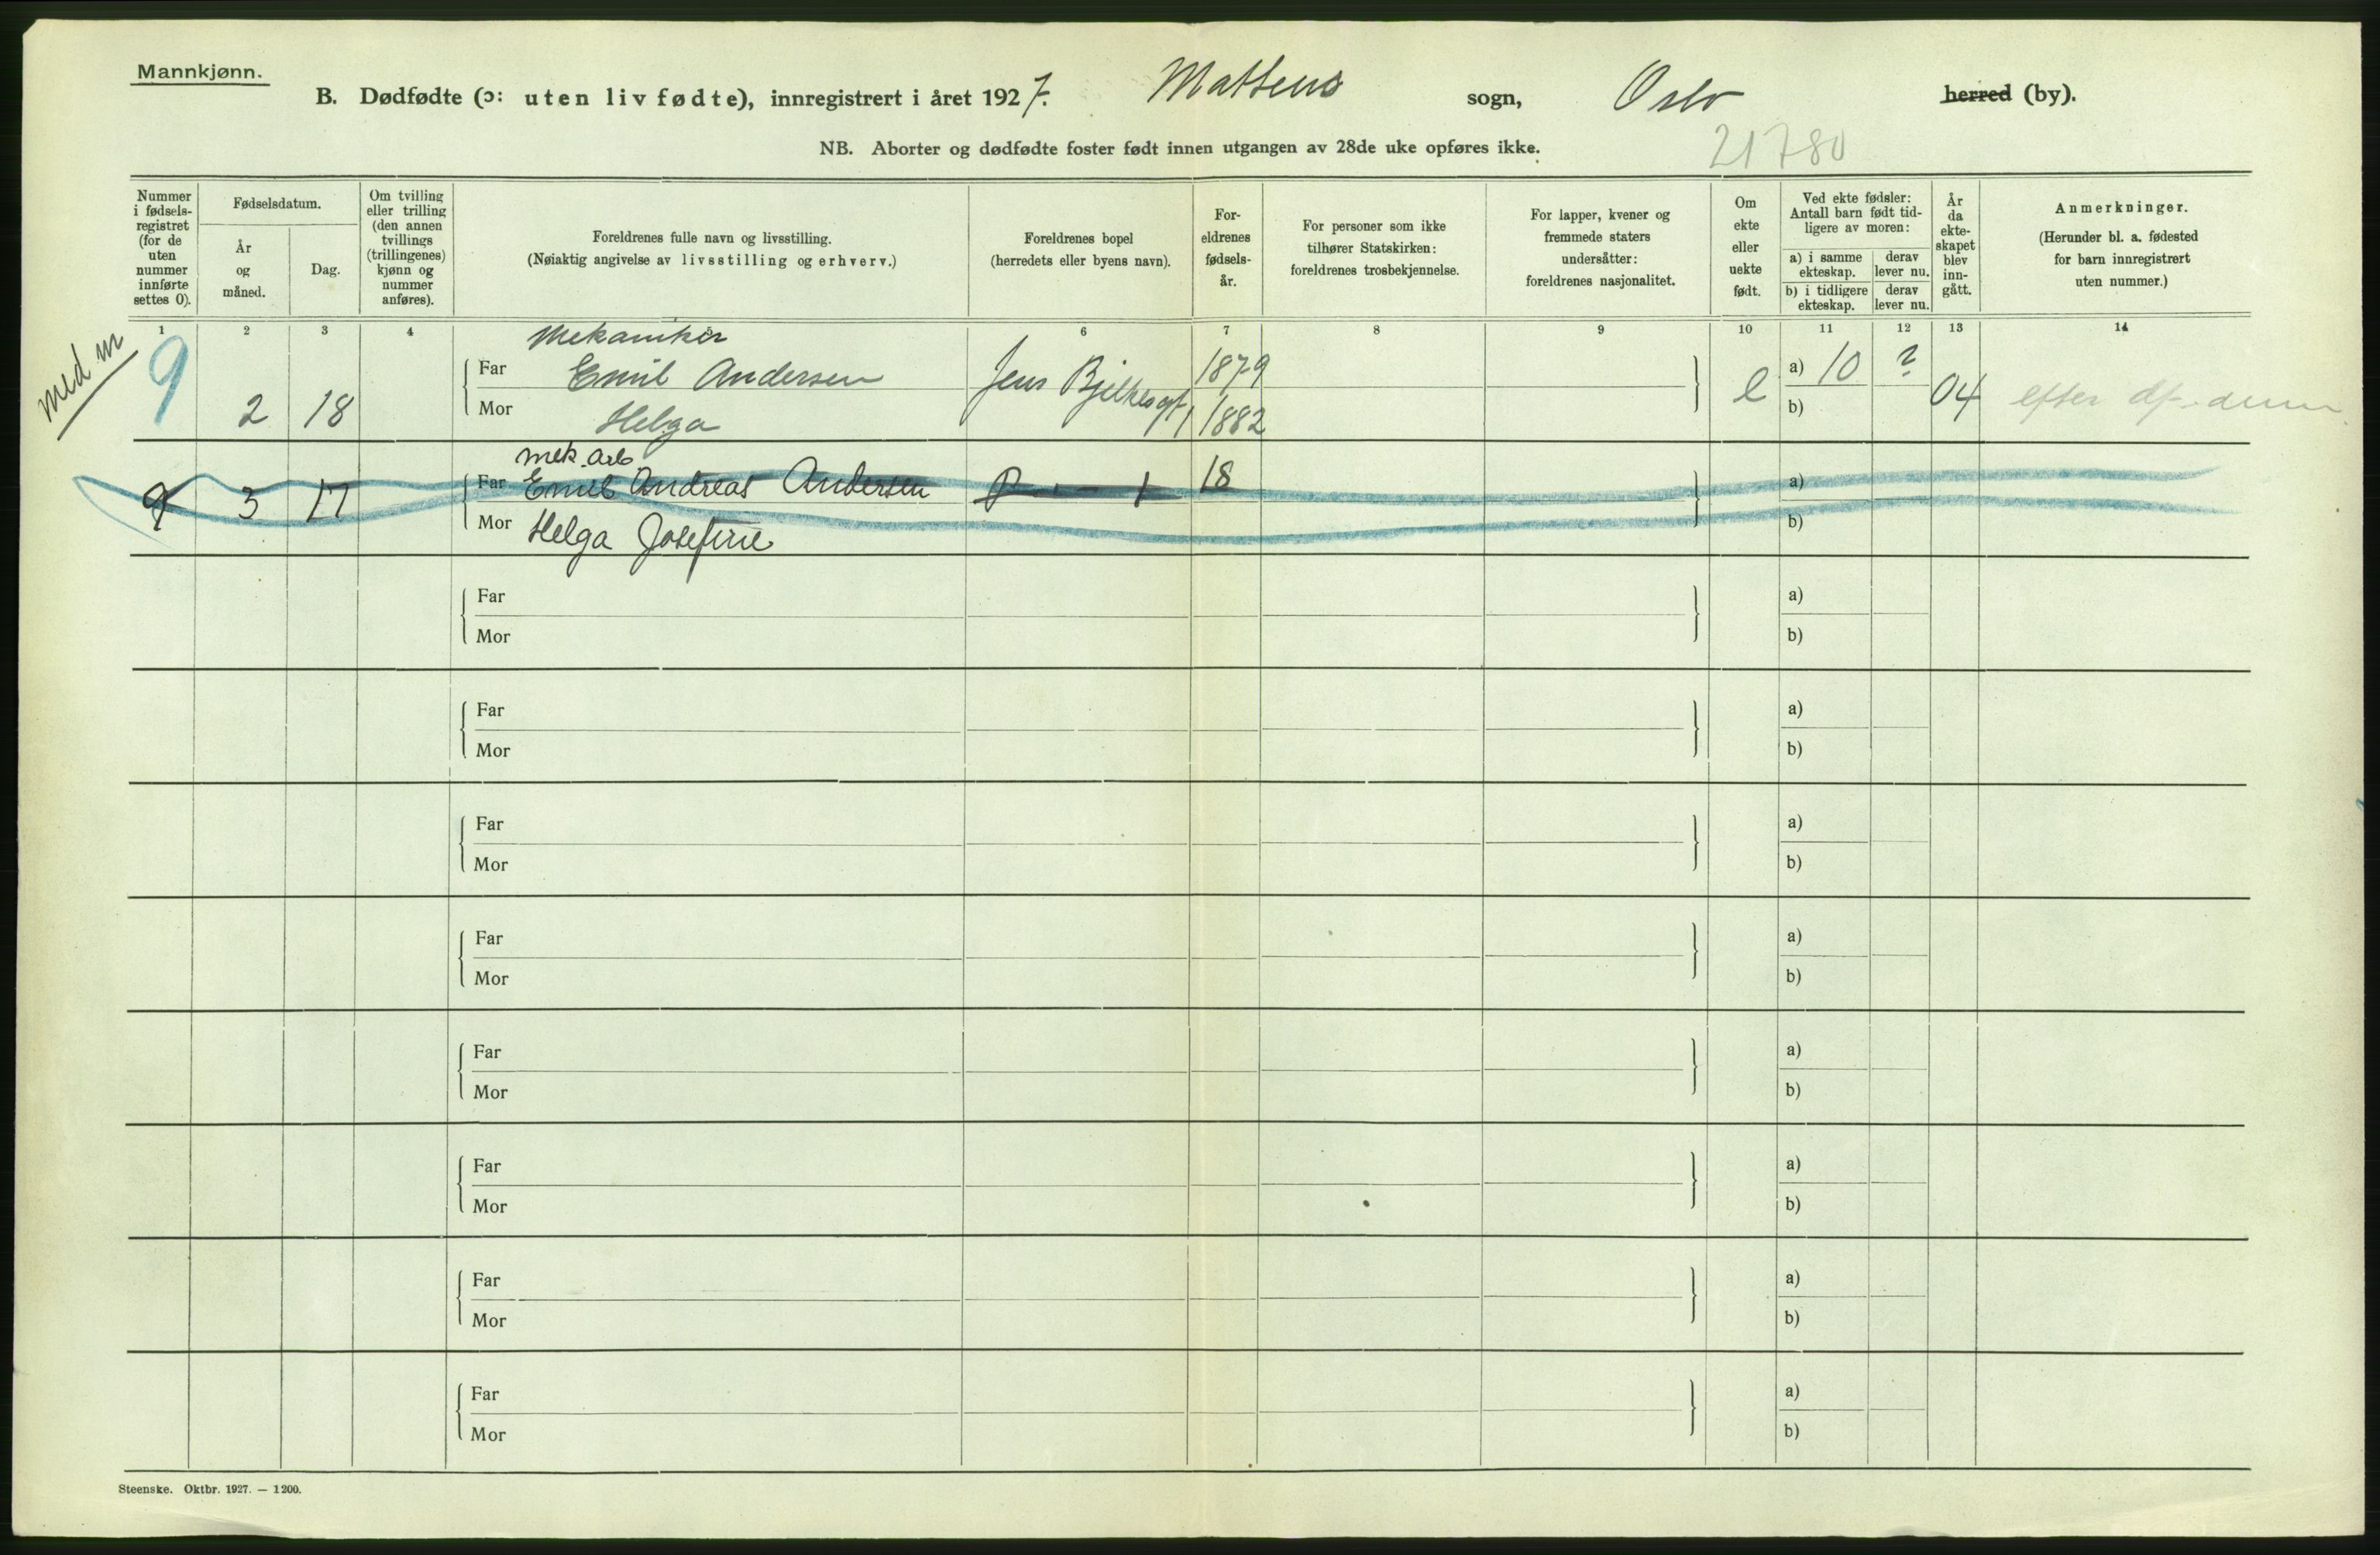 Mannkjønn.
B. Dødfødte (ɔ: uten liv fødte), innregistrert i året 1927. Matteus sogn, Oslo herred (by).
21780
NB. Aborter og dødfødte foster født innen utgangen av 28de uke opføres ikke.
Nummer i fødselsregistret (for de uten nummer innførte settes 0).
Fødselsdatum.
År og måned.
Dag.
Om tvilling eller trilling (den annen tvillings (trillingenes) kjønn og nummer anføres).
Foreldrenes fulle navn og livsstilling.
(Nøiaktig angivelse av livsstilling og erhverv.)
Foreldrenes bopel
(herredets eller byens navn).
Foreldrenes fødselsår.
For personer som ikke tilhører Statskirken: foreldrenes trosbekjennelse.
For lapper, kvener og fremmede staters undersåtter: foreldrenes nasjonalitet.
Om ekte eller uekte født.
Ved ekte fødsler: Antall barn født tidligere av moren:
a) i samme ekteskap. derav lever nu.
b) i tidligere ekteskap. derav lever nu.
År da ekteskapet blev inngått.
Anmerkninger.
(Herunder bl. a. fødested for barn innregistrert uten nummer.)
1 2 3 4 6 7 8 9 10 11 12 13 14
med m
Mekaniker
9 Far Emil Andersen Jens Bjelkesgt 1879 a) 10 ?
2 18 Mor Helga 1 1882 e b) 04 efter df.
mek. arb
9 3 17 Far Emil Andreas Andersen 18 a)
Mor Helga Josefine b)
Far a)
Mor b)
Far a)
Mor b)
Far a)
Mor b)
Far a)
Mor b)
Far a)
Mor b)
Far a)
Mor b)
Far a)
Mor b)
Far a)
Mor b)
Steenske. Oktbr. 1927. — 1200.